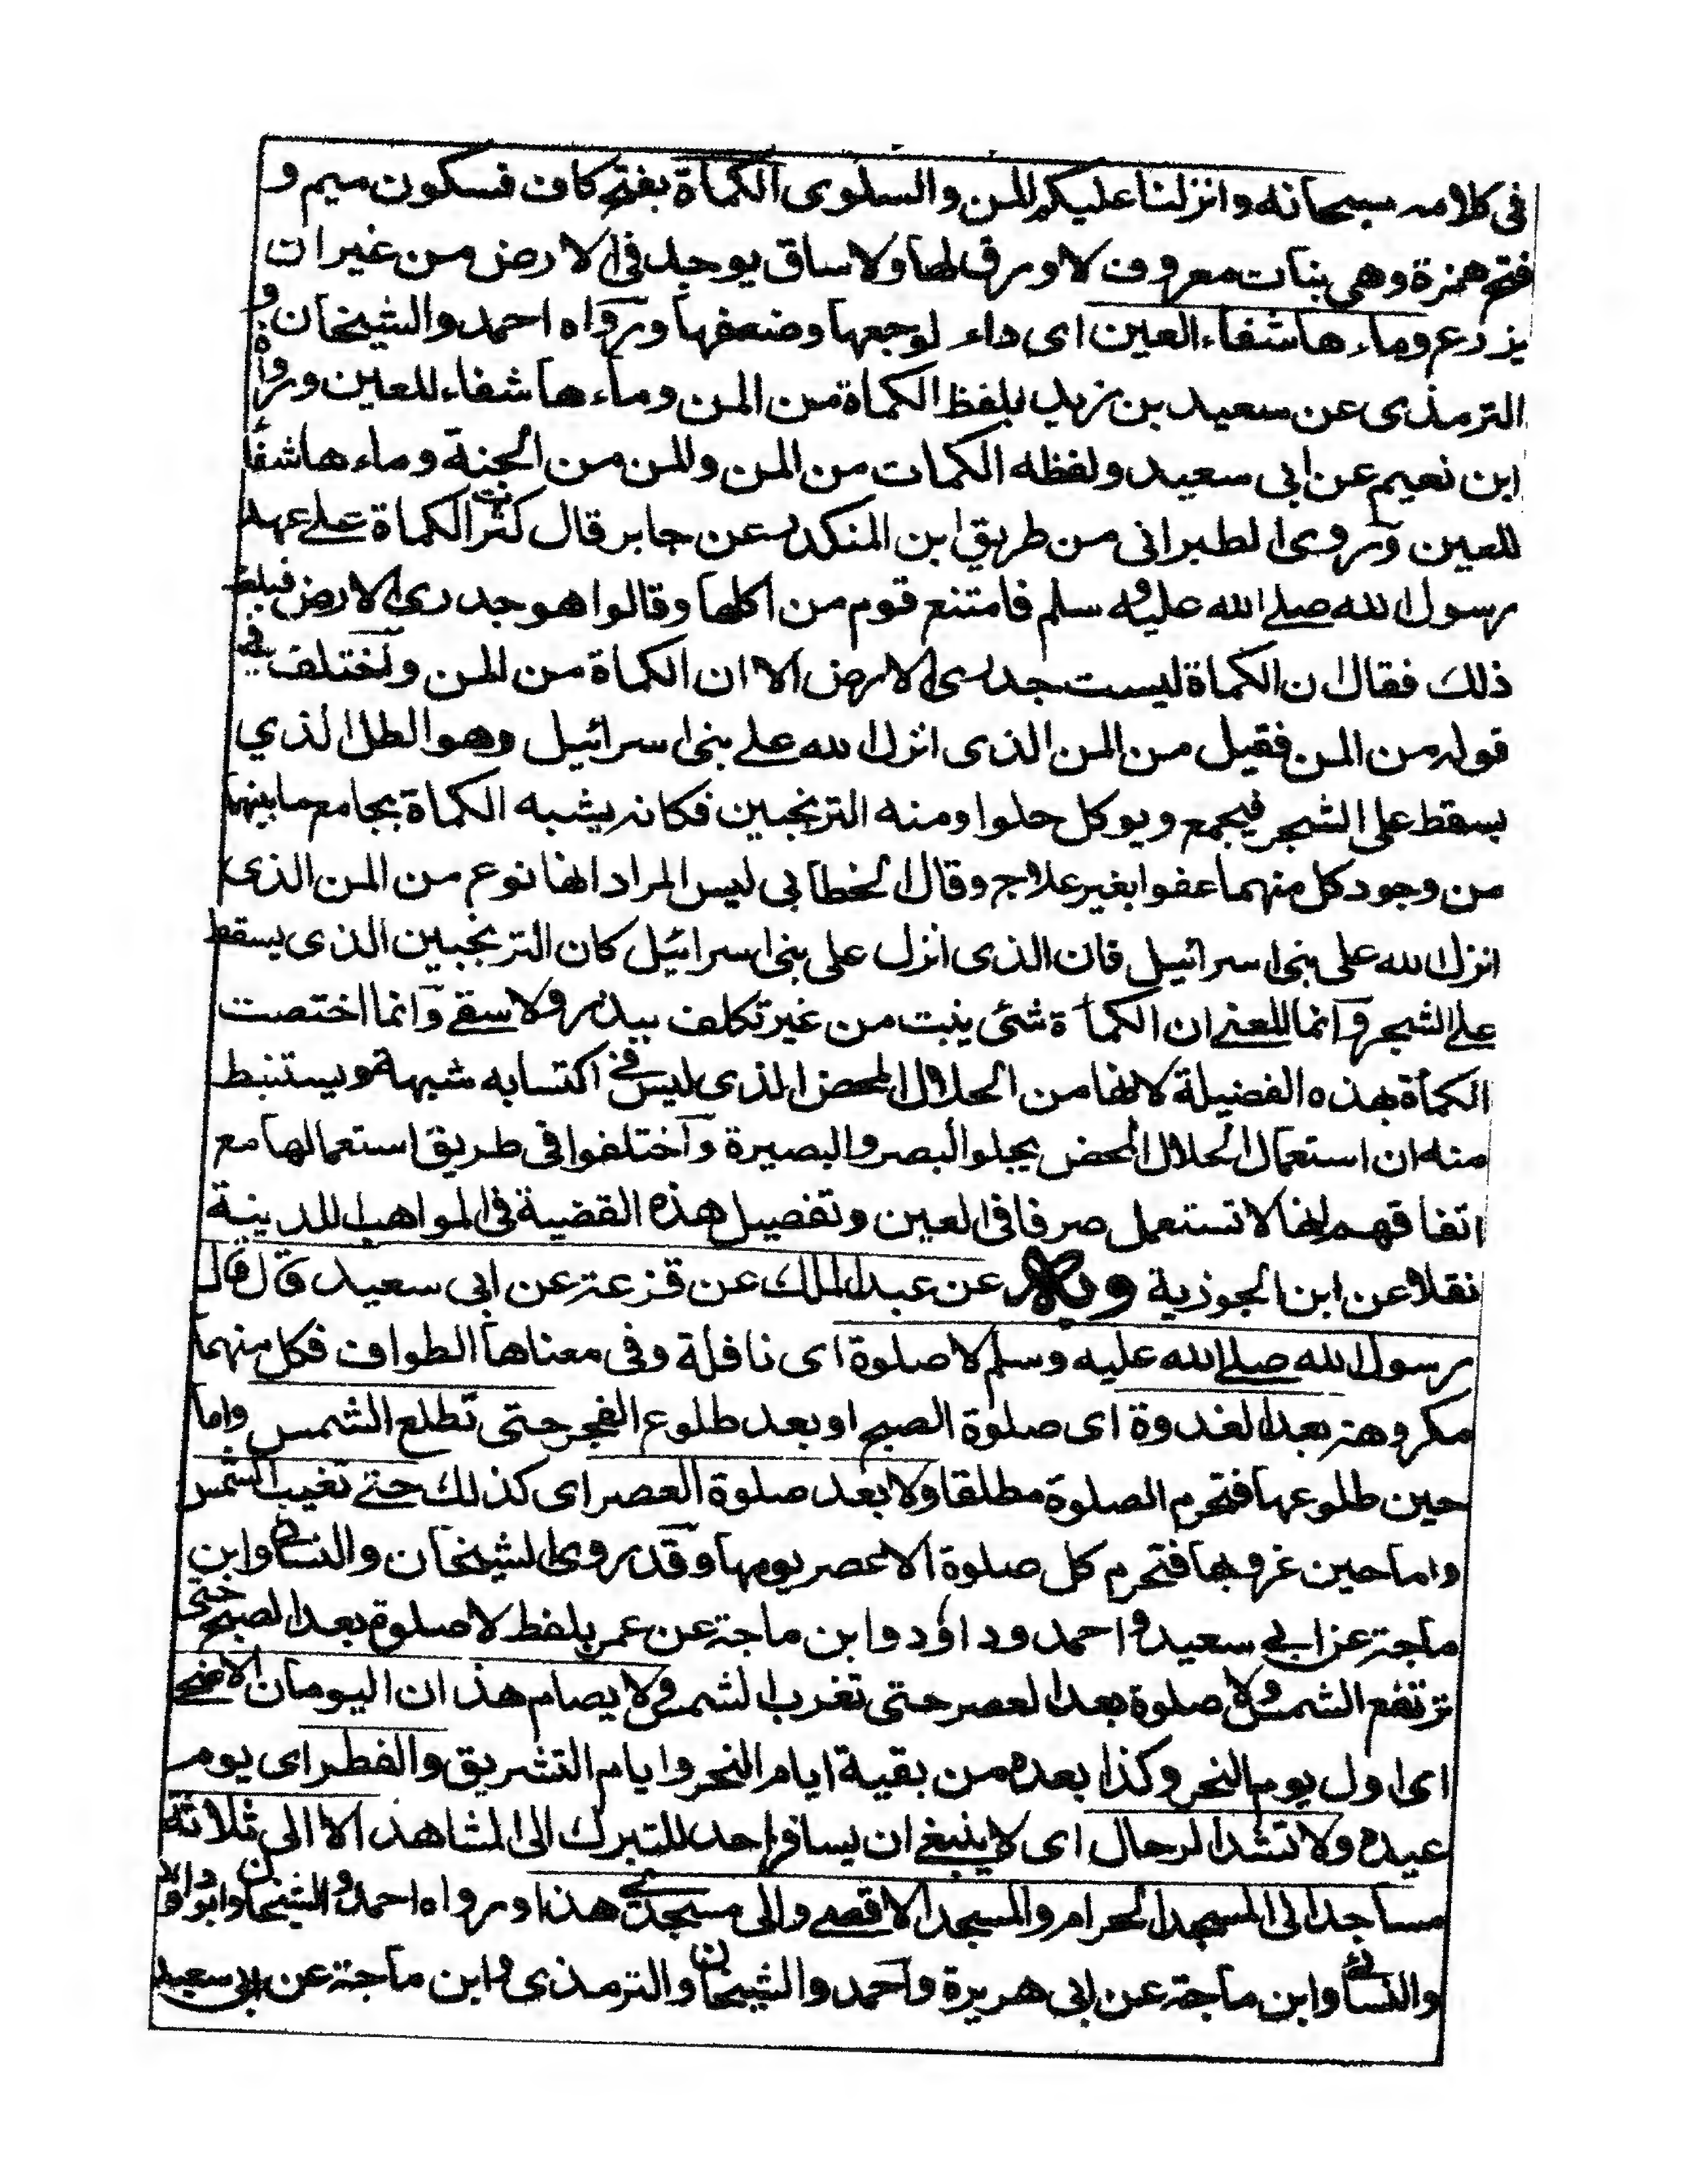 فى كلامه سبحانه وانزلنا عليكم المن والسلوى الكماة بفتح كاف فسكون ميم و
فتح همزة وهى بنات معروف لا ورق لها ولا ساق يوجد فى الارض من غير ان
يزرع وماءها شفاء العين اى داء لوجعها وضعفها ورواه احمد والشيخان و
الترمذى عن سعيد بن زيد بلفظ الكماة من المن وماءها شفاء للعين ورواه
ابن نعيم عن ابى سعيد ولفظه الكمات من المن والمن من الجنة وماءها شفأ
للعين وروى الطبرانى من طريق ابن المنكدر عن جابر قال كثرت الكماة على عهد
رسول الله صلى الله عليه وسلم فامتنع قوم من اكلها وقالوا هو جدرى الارض فبلغه
ذلك فقال ان الكماة ليست جدرى الارض الا ان الكماة من المن واختلف فى
قوله من المن فقيل من المن الذى انزل الله على بنى اسرائيل وهو الطل الذي
يسقط على الشجر فيجمع ويوكل حلوا ومنه الترنجبين فكانه يشبه الكماة بجامع ما بينهما
من وجود كل منهما عفوا بغير علاج وقال الخطابى ليس المراد انها نوع من المن الذى
انزل الله على بنى اسرائيل فان الذى انزل على بنى اسرائيل كان الترنجبين الذى يسقط
على الشجر وانما المعنى ان الكمأة شئ ينبت من غير تكلف ببذر ولا سقى وانما اختصت
الكمأة بهذه الفضيلة لانها من الحلال المحض الذى ليس فى اكتسابه شبهة ويستنبط
منه ان استعمال الحلال المحض يجلو البصر والبصيرة واختلفوا فى طريق استعمالها مع
اتفاقهم انها لا تستعمل صرفا فى العين وتفصيل هذه القضية فى المواهب اللدينة
نقلا عن ابن الجوذية وبه عن عبد الملك عن قزعة عن ابى سعيد قال قال
رسول الله صلى الله عليه وسلم لا صلوة اى نافلة وفى معناها الطواف فكل منهما
مكروهة بعد الغدوة اى صلوة الصبح او بعد طلوع الفجر حتى تطلع الشمس واما
حين طلوعها فتحرم الصلوة مطلقا ولا بعد صلوة العصر اى كذلك حتى تغيب الشمس
واما حين غروبها فتحرم كل صلوة الا عصر يومها وقد روى الشيخان والنسائى وابن
ماجة عن ابى سعيد واحمد ود اؤد وابن ماجة عن عمر بلفظ لا صلوة بعد الصبح حتى
ترتفع الشمس ولا صلوة بعد العصر حتى تغرب الشمس ولا يصام هذان اليومان الاضحى
اى اول يوم النحر وكذا بعده من بقية ايام النحر وايام التشريق والفطر اى يوم
عيده ولا تشد الرحال اى لا ينبغى ان يسافر احد للتبرك الى المشاهد الا الى ثلاثة
مساجد الى المسجد الحرام والمسجد الاقصى والى مسجدى هذا ورواه احمد والشيخان وابوداؤد
والنسائى وابن ماجة عن ابى هريرة واحمد والشيخان والترمذى وابن ماجة عن ابى سعيد